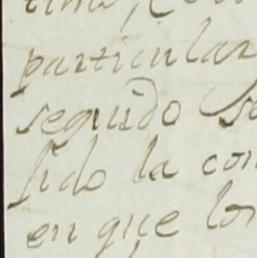 particular
seguido se
lido la con
en que los